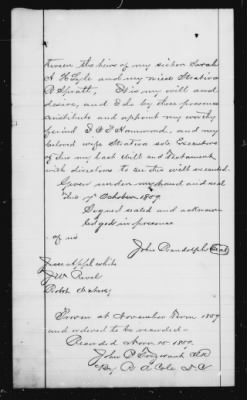 tween the heirs of my sister Sarah
A. H. Lyle and my niece Strativa
R. Spratt, It is my will and
desire, and I do by these presence
institute and appoint my worthy
friend S. F. Hammond, and my
beloved wife Strativa sole Executors
of this my last Will and Testament
with directions to see this will executed.
Given under my hand and seal
this 7th October 1859.
Signed sealed and acknow
ledged in presence
of us
John Randolph Seal
Jesse Applewhite
J W Revel
Robt.
Proven at November Term 1859
and ordered to be recorded—
Recorded Nov. 15 1859.
John P. Trezevant Clk
By R. A. Cole D.C.